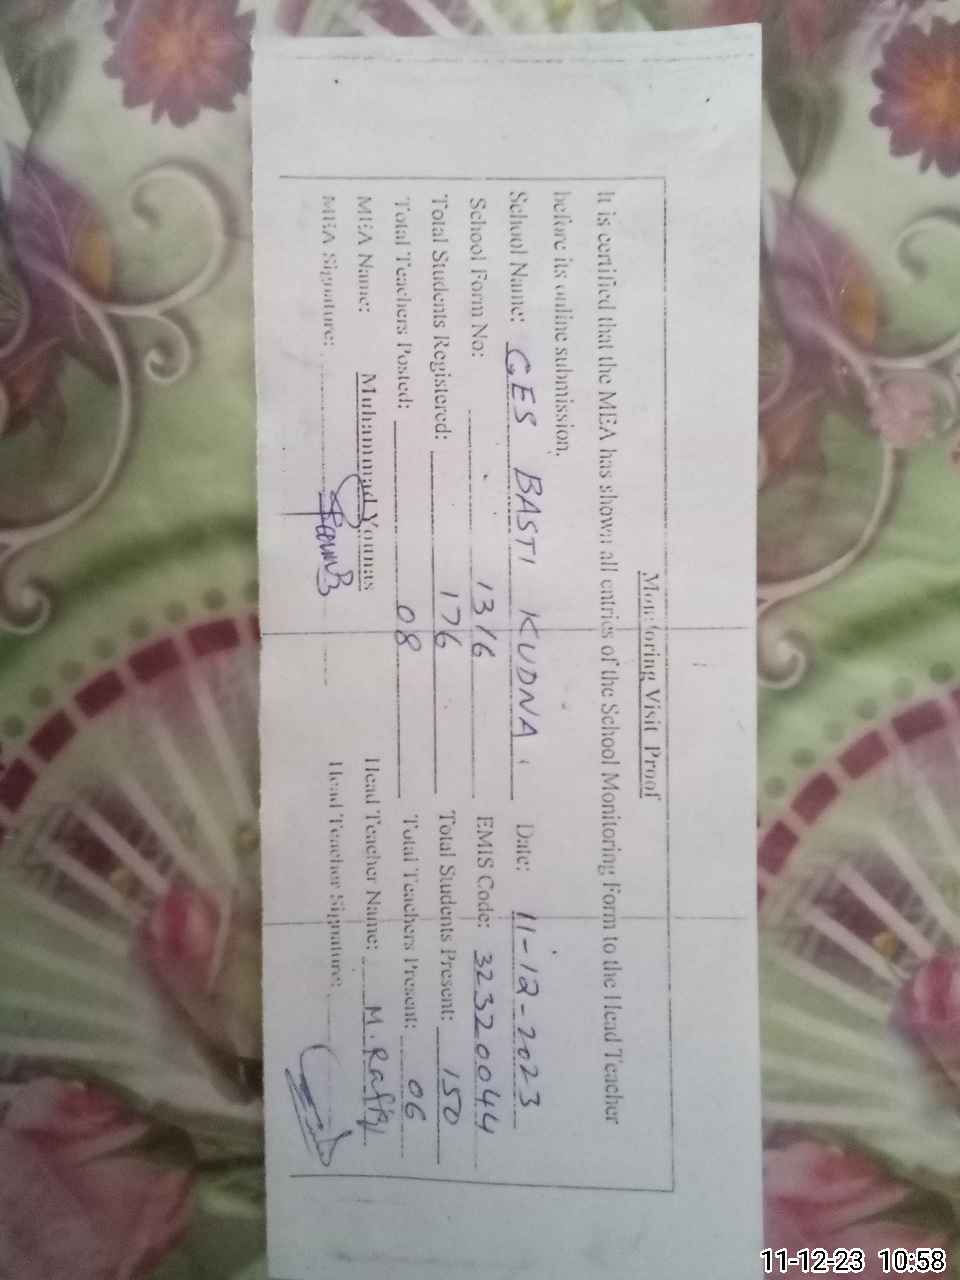 Monitoring Visit Proof
It is certified that the MEA has shown all entries of the School Monitoring Form to the Head Teacher
before its online submission.
School Name: GES BASTI KUDNA Date: 11-12-2023
School Form No: 1316 EMIS Code: 32320044
Total Students Registered: 176 Total Students Present: 150
Total Teachers Posted: 08 Total Teachers Present: 06
MEA Name: Muhammad Younas Head Teacher Name: M. Rafiq
MEA Signature: Head Teacher Signature:
11-12-23 10:58